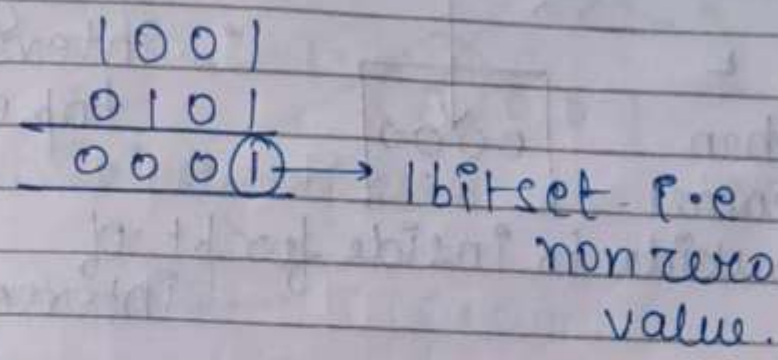 1001
0101
0001 → 1bitset i.e
non zero
value.